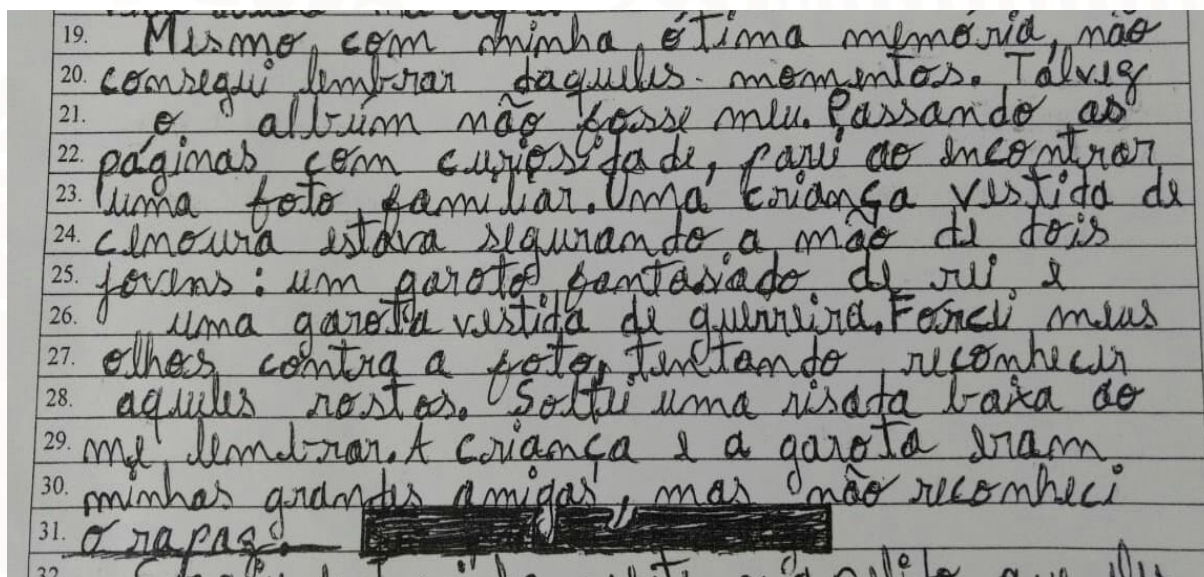 19. Mesmo com minha ótima memória, não
20. consegui lembrar daqueles momentos. Talvez
21. o álbum não fosse meu. Passando as
22. páginas com curiosidade, parei ao encontrar
23. uma foto familiar. Uma criança vestida de
24. cenoura estava segurando a mão de dois
25. jovens: um garoto fantasiado de rei e
26. uma garota vestida de guerreira. Forcei meus
27. olhos contra a foto, tentando reconhecer
28. aqueles rostos. Soltei uma risada baixa ao
29. me lembrar. A criança e a garota eram
30. minhas grandes amigas, mas não reconheci
31. o rapaz.
32.